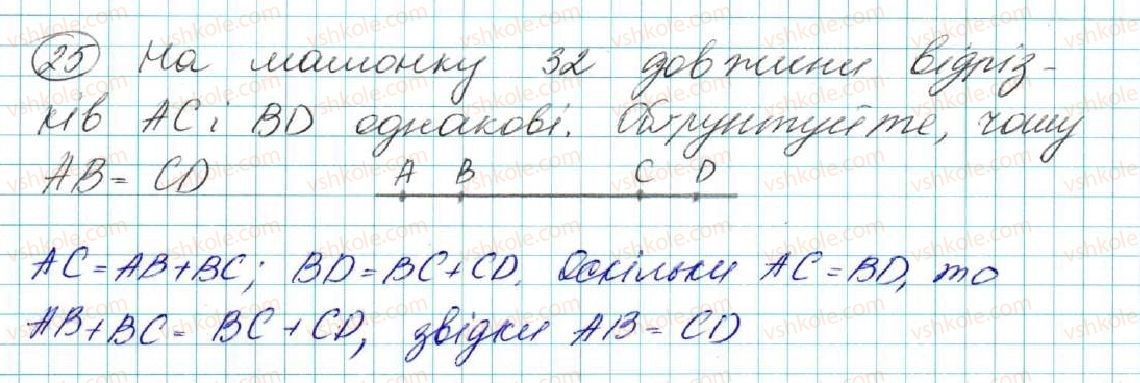 25 На малюнку 32 довжини відріз-
ків AC і BD однакові. Обґрунтуйте, чому
AB = CD
A B C D
AC = AB + BC; BD = BC + CD. Оскільки AC = BD, то
AB + BC = BC + CD, звідки AB = CD